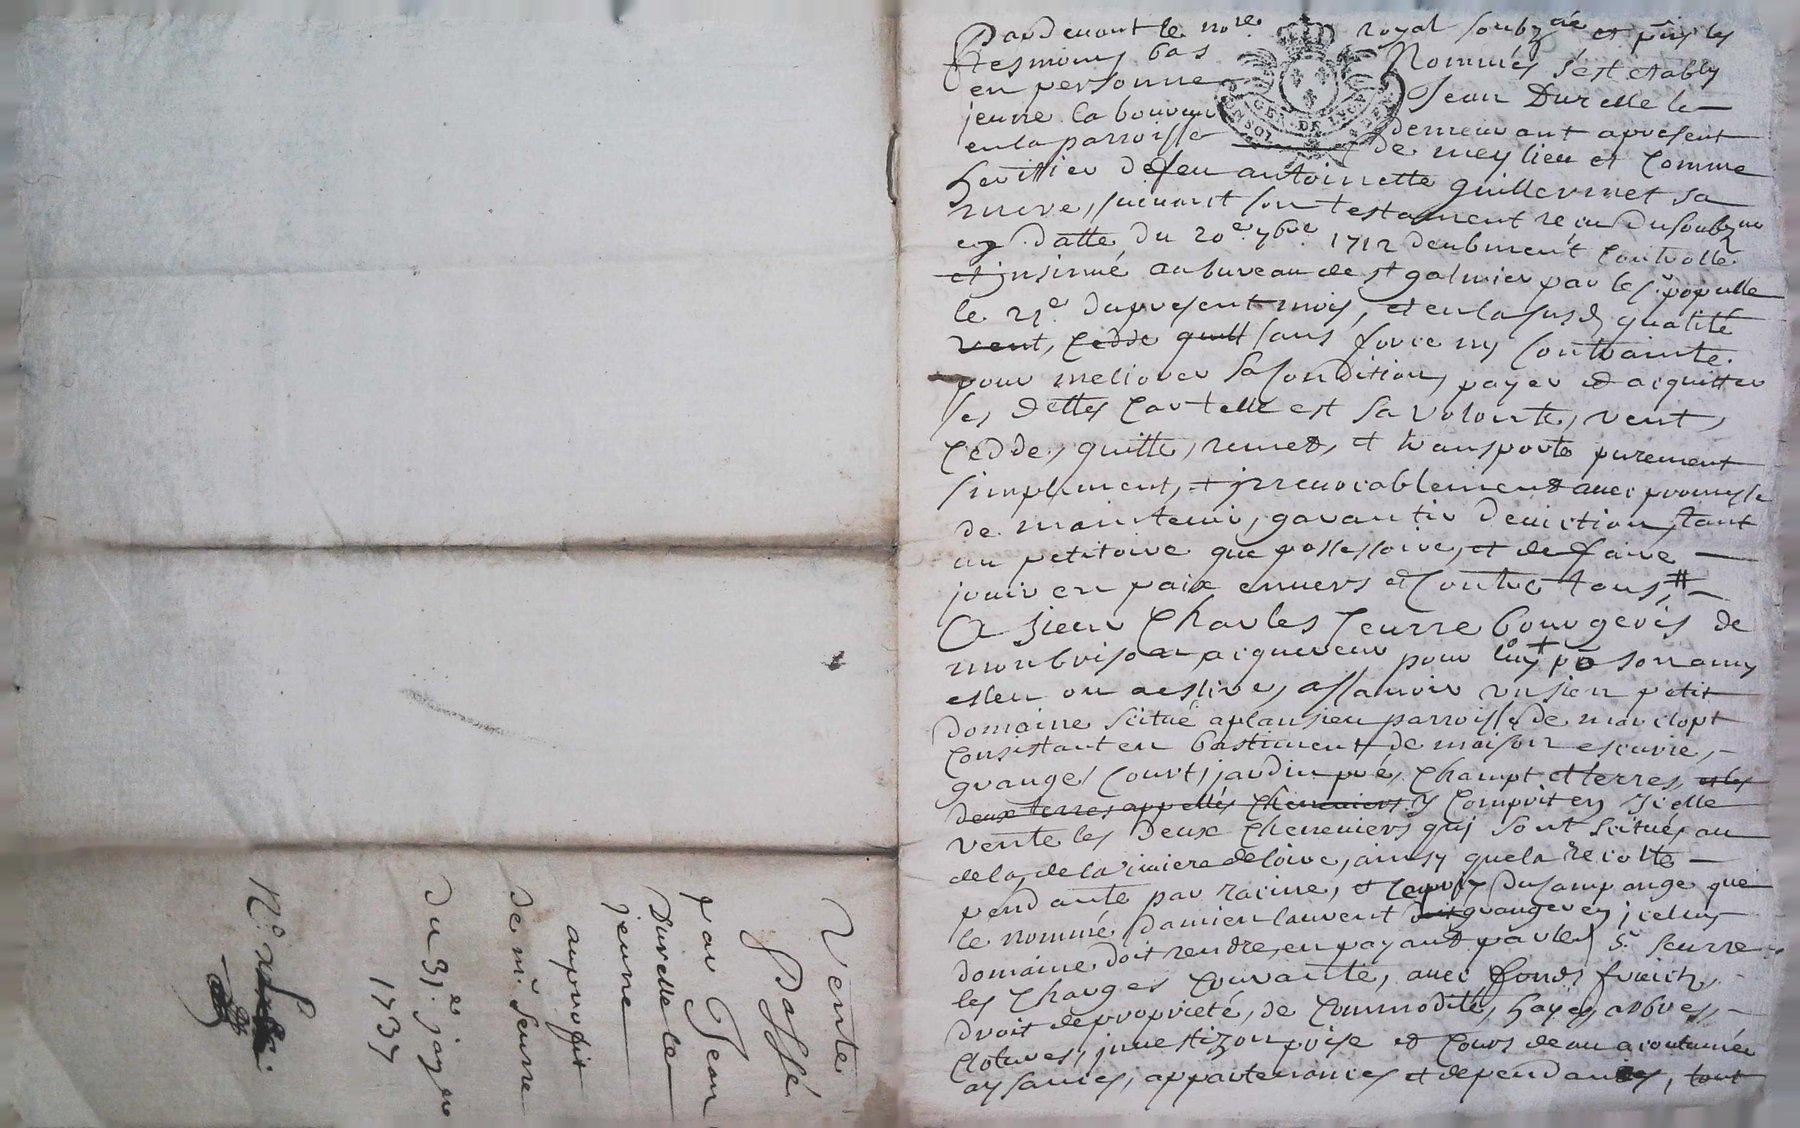 Pardevant le no.re royal soubz.né et pñs les
tesmoins bas Nommés s'est estably
en personne Jean Durelle le
jeune laboureur demeurant apresent
en la parroisse de meylieu et comme
heritier de feu antoinette guillerminet sa
mere, suivant son testament receu du soubz.né
en datte du 20.e 7bre 1712 deubment controllé
et insinué au bureau de st galmier par le s.r populle
le 21.e du present mois, et en la susd. qualité
vent, cedde quitt sans force ny contrainte
pour meliorer sa condition, payer et acquitter
ses dettes car telle est sa volonte, vent,
cedde, quitte, remet, et transporte purement
simplement, et irrevocablement avec promesse
de maintenir, garantir d'eviction, tant
au petitoire que possessoire, et de faire
jouir en paix envers et contre tous, #
A sieur Charles Seurre bourgeois de
monbrison acquereur pour luy + son amy
esleu ou aeslire, assavoir un sien petit
domaine scitué a plansieu parroisse de marclopt
consistant en bastiment de maison escurie,
grange, court, jardin pré, champt et terres, et les
deux terres appellés cheneviers y comprit en icelle
vente les deux cheneviers qui sont scitués au
dela, de la riviere de loire, ainsy que la recolte
pendante par racine, et du sampange que
le nommé damien laurent granger en iceluy
domaine doit rendre, en payant par led s.r Seurre
les charges courante, avec fonds fruicts,
droit de proprieté, de commodité, hayes arbres,
clotures, investizon prise et cours deau acoutumée
aysances, appartenances et dependances, tout
Vente
Passé
par Jean
Durelle le
jeune
au proffit
de m.r Seurre
du 31.e janv.er
1737
N.o